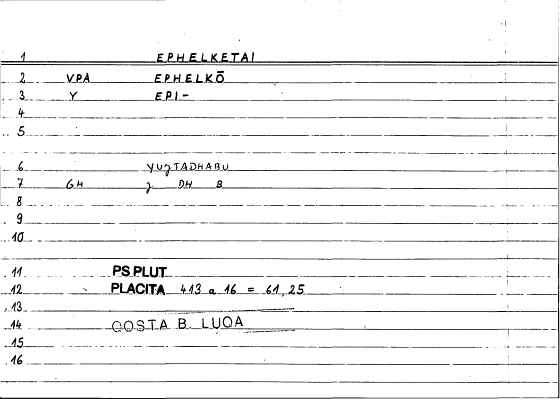 1 EPHELKETAI
2 VPA EPHELKŌ
3 Y EPI-
4
5
6 YUʒTADHABU
7 GH ʒ DH B
8
9
10
11 PS PLUT
12 PLACITA 413 a 16 = 61,25
13
14 QOSTA B. LUQA
15
16